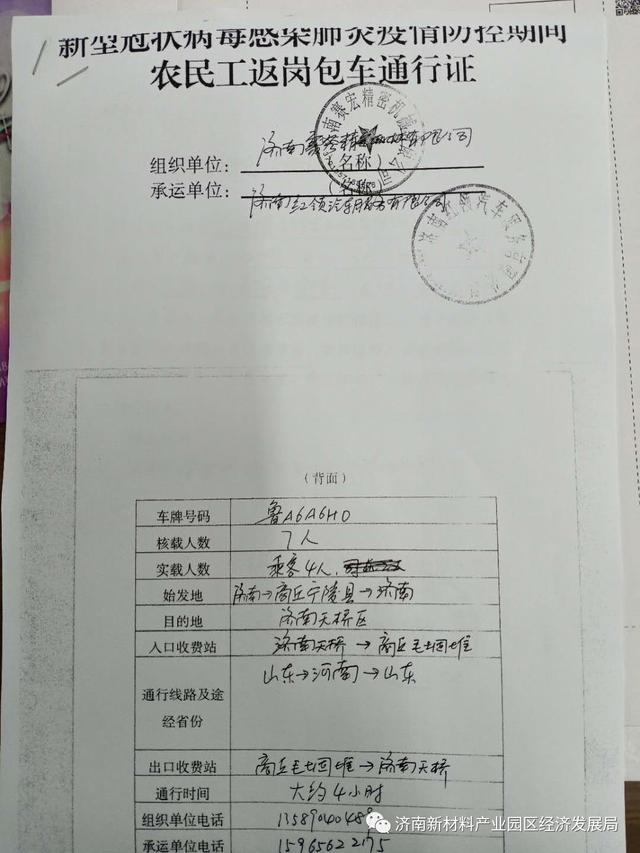 新型冠状病毒感染肺炎疫情防控期间
农民工返岗包车通行证
组织单位：
(名称)
承运单位：济南红领汽车服务有限公司
(名称)
济南赛宏精密机械有限公司
济南红领汽车服务有限公司
（背面）
车牌号码 鲁A6A6H0
核载人数 7人
实载人数 乘客4人，
始发地 济南→商丘宁陵县→济南
目的地 济南天桥区
入口收费站 济南天桥→商丘毛堌堆
通行线路及途经省份 山东→河南→山东
出口收费站 商丘毛堌堆→济南天桥
通行时间 大约4小时
组织单位电话
承运单位电话 15965622175
济南新材料产业园区经济发展局